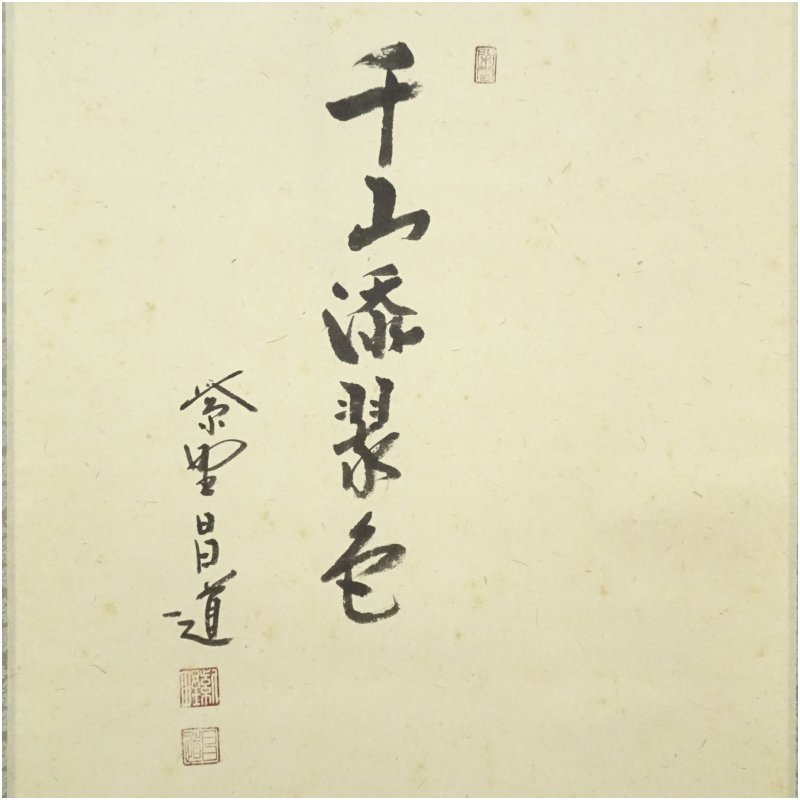 千山添翠色
紫野昌道